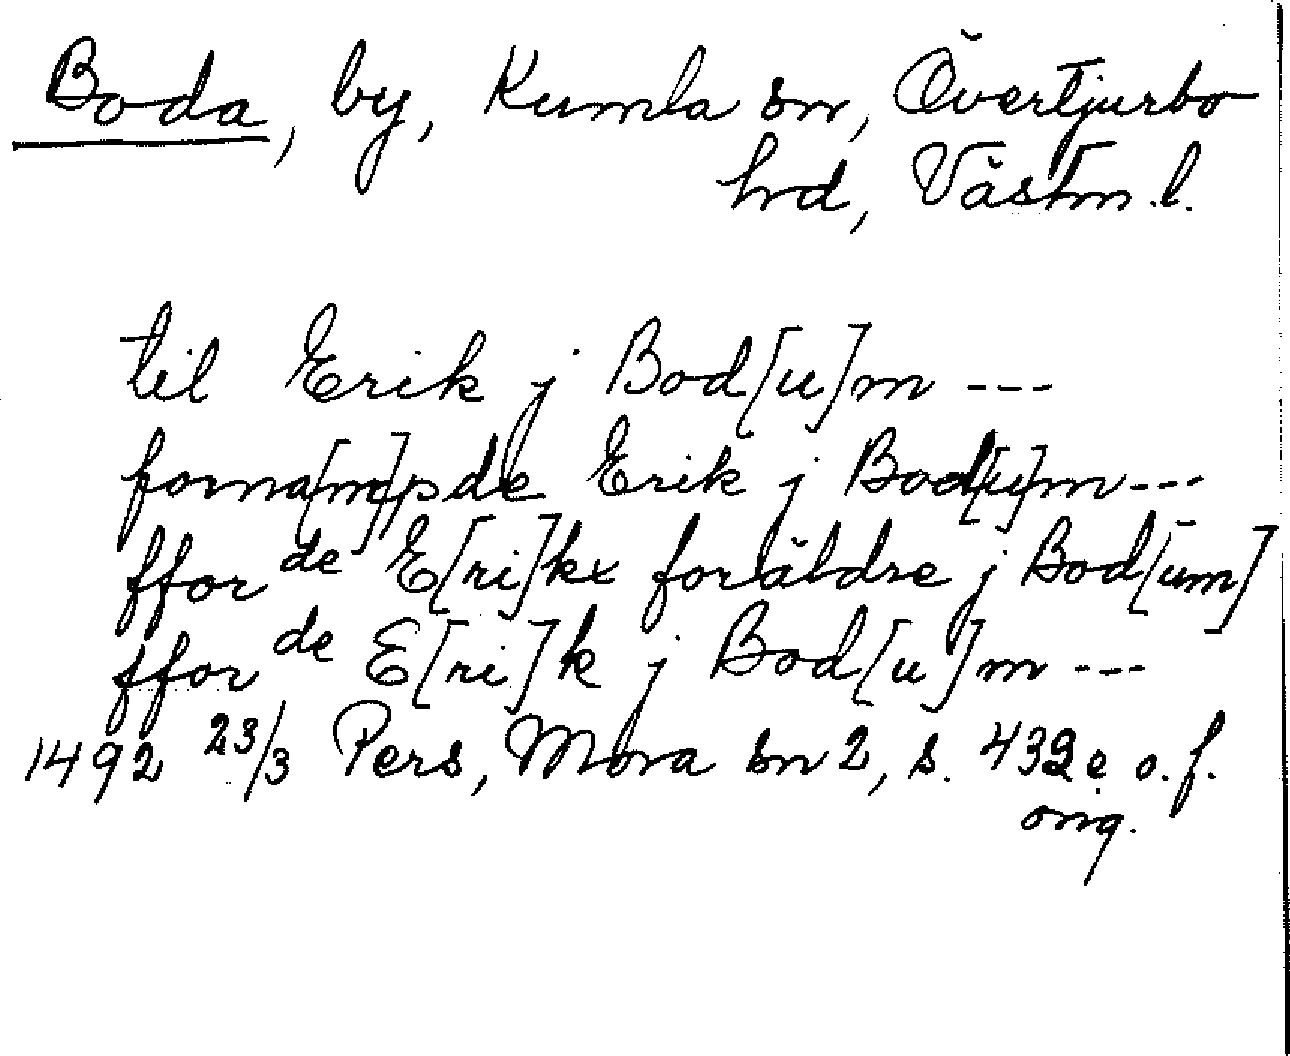 Boda, by, Kumla sn, Övertjurbo
hd, Västm.l.
til Erik j Bod[u]m ---
forna[m]pde Erik j Bod[u]m ---
ffor de E[ri]kx foräldre j Bod[um]
ffor de E[ri]k j Bod[u]m ---
1492 23/3 Pers, Mora sn 2, s. 432 e o.f.
orig.